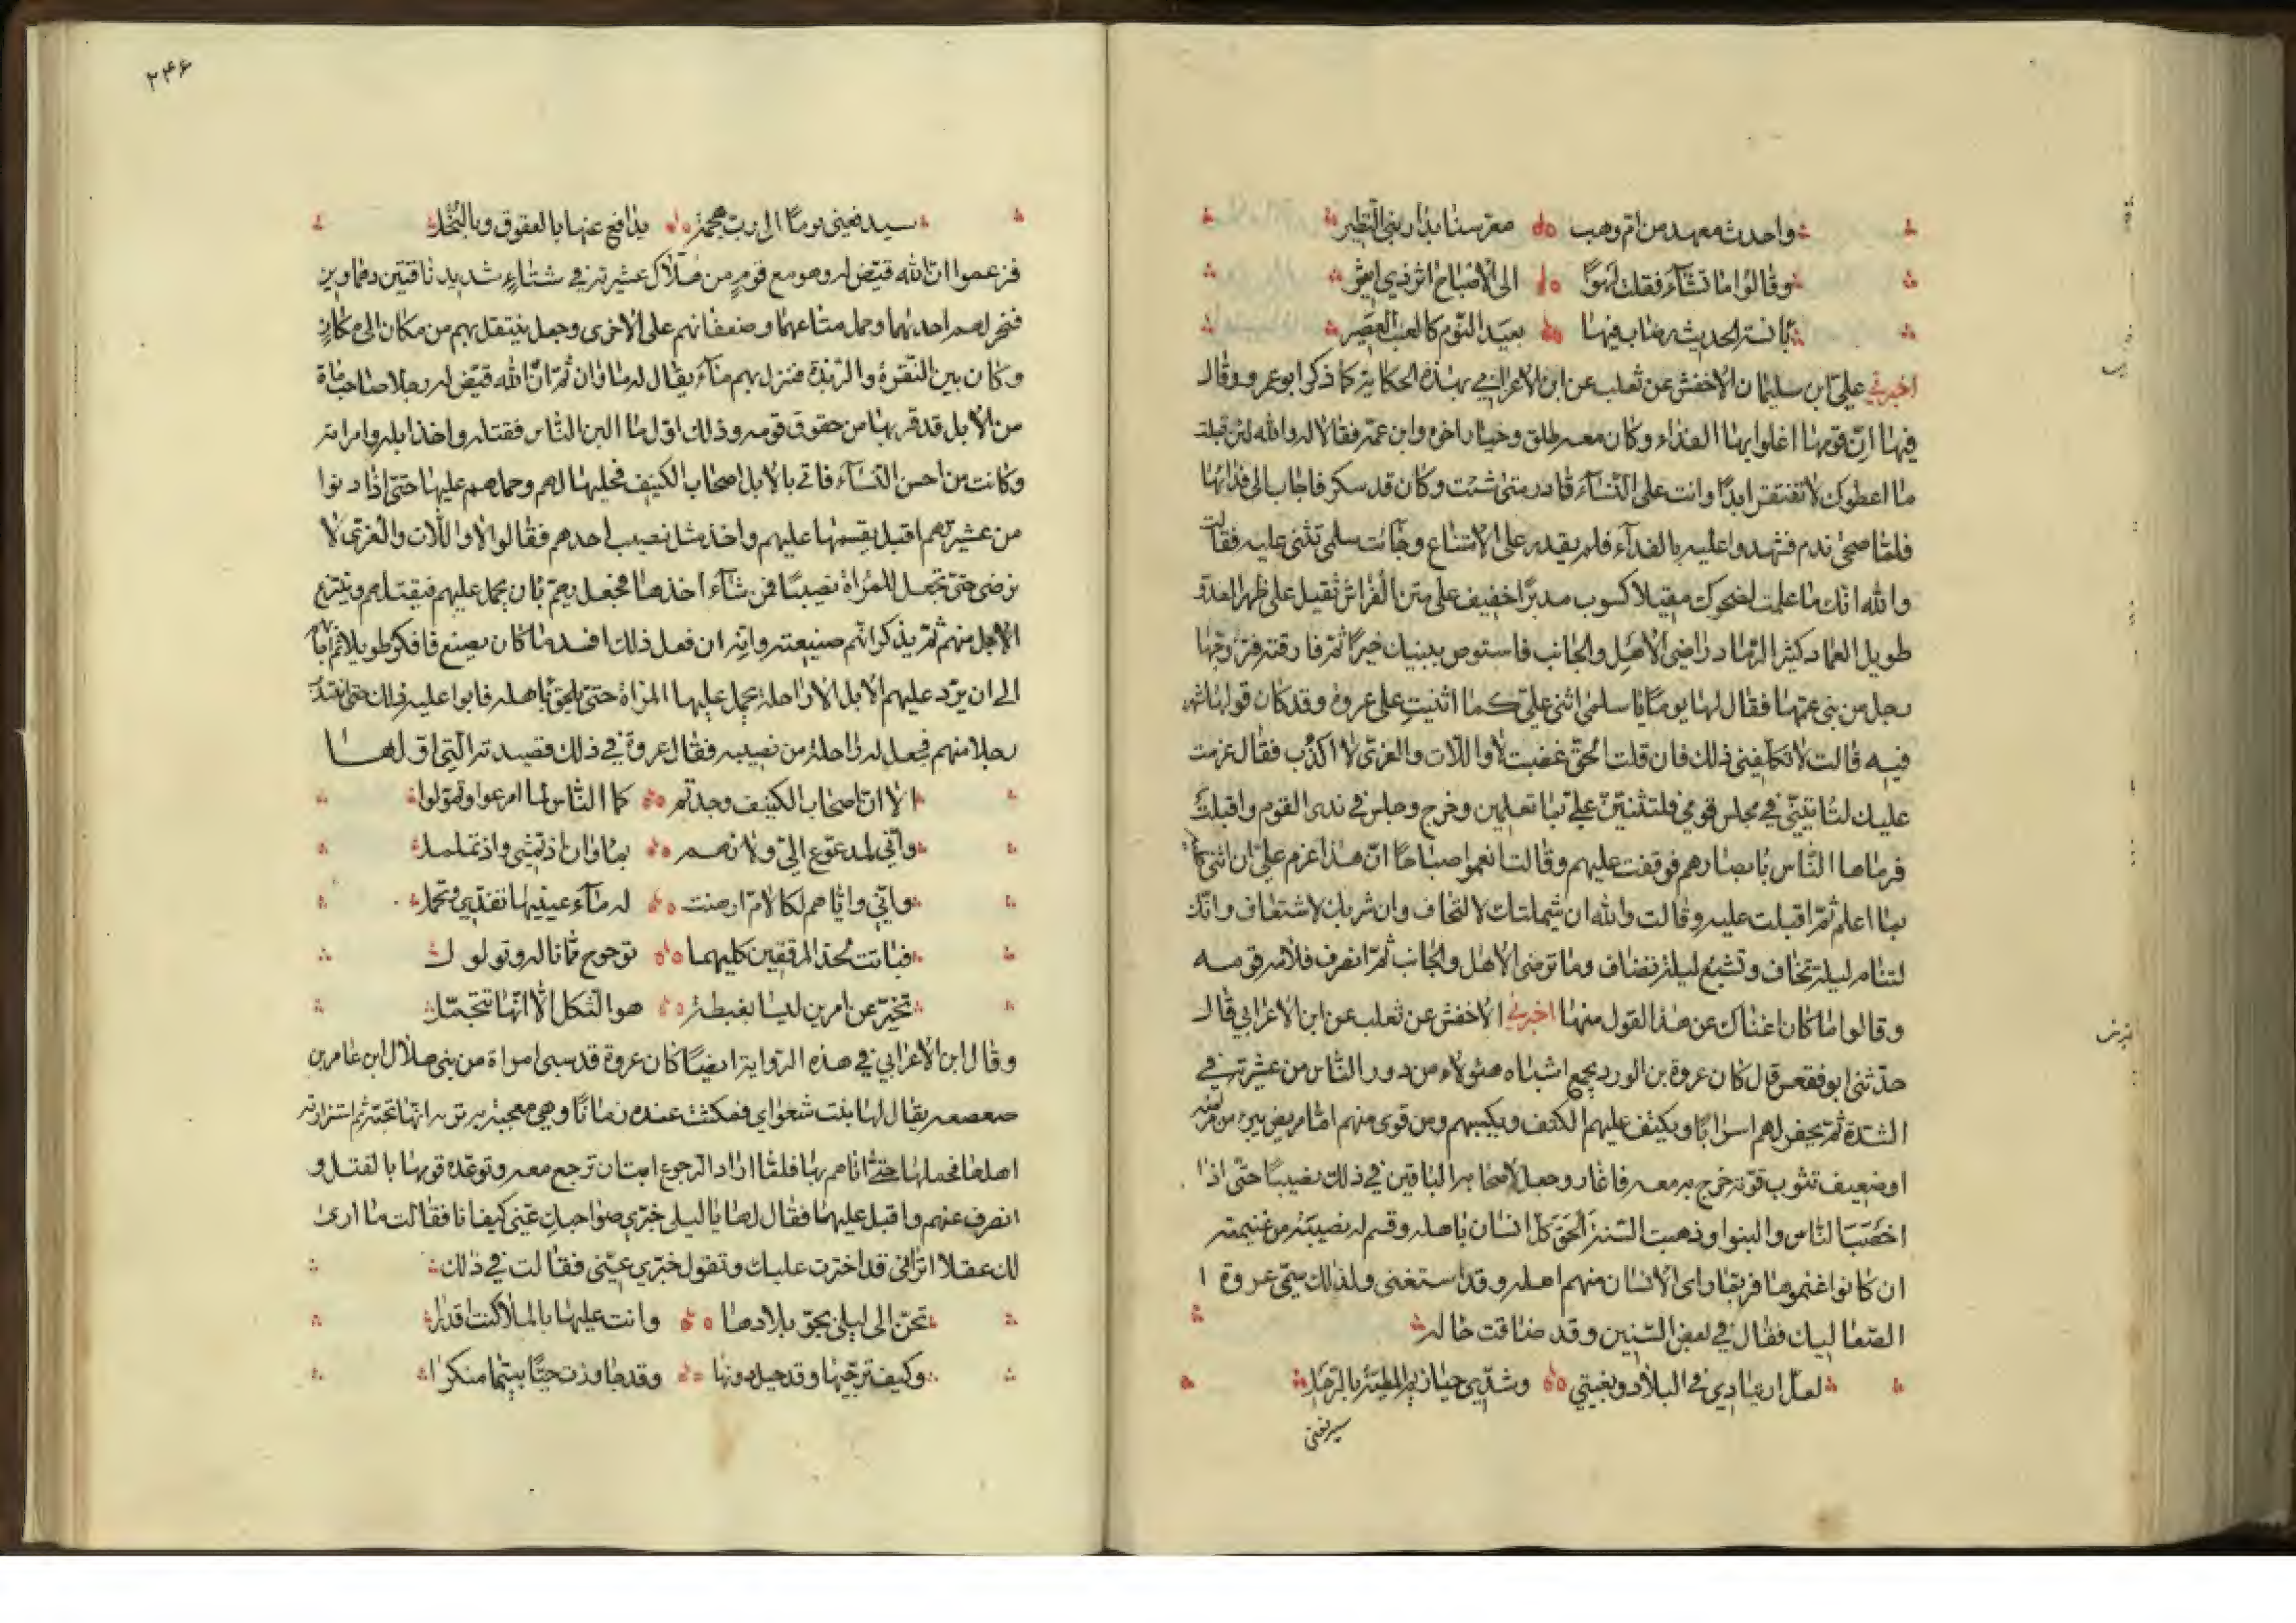 واحدث معهد من ام وهب معرسنا بدار بني النظير
وقالوا ما تشآء فقلت الهوا الى الاصباح اثر ذي اثير
بآنسة الحديث رضاب فيها بعيد النوم كالعنب العصير
اخبرني علي ابن سليمان الاخفش عن ثعلب عن ابن الاعرابي بهذه الحكاية كما ذكر ابو عمرو وقال
فيها ان قومها اغلوا بها الفداء وكان معه طلق وخيار اخوه وابن عمه فقالا له والله لئن قبلت
ما اعطوك لا تفتقر ابدا وانت على النسآء قادر متى شئت وكان قد سكر فاجاب الى فدائها
فلما صحى ندم فشهدوا عليه بالفدآء فلم يقدر على الامتناع وجائت سلمى تثنى عليه فقالت
والله انك ما علمت لضحوك مقبلا كسوب مدبرا خفيف على متن الفراش ثقيل على ظهر العدو
طويل العماد كثير الرماد راضى الاهل والجانب فاستوص ببنيك خيرا ثم فارقته فتزوجها
رجل من بنى عمها فقال لها يوما يا سلمى اثنى علي كما اثنيت على عروة وقد كان قولها شهر
فيه قالت لا تكلفنى ذلك فان قلت الحق غضبت لا واللات والعزى لا اكذب فقال عزمت
عليك لتاتينى في مجلس قومي فلتثنين علي بما تعلمين وخرج وجلس في ندى القوم واقبلت
فرماها الناس بابصارهم فوقفت عليهم وقالت انعموا صباحا ان هذا عزم علي ان اثنى عليه
بما اعلم ثم اقبلت عليه وقالت والله ان شملتك لالتحاف وان شربك لاشتفاف وانك
لتنام ليلة تخاف وتشبع ليلة تضاف وما ترضى الاهل والجانب ثم انصرف فلامه قومه
وقالوا ما كان اغناك عن هذا القول منها اخبرني الاخفش عن ثعلب عن ابن الاعرابي قال
حدثنى ابو فقعس قال كان عروة بن الورد يجمع اشباه هئولاء من دور الناس من عشيرته في
الشدة ثم يحفر لهم اسرابا ويكنف عليهم الكنف ويكسبهم ومن قوى منهم اما مريض يبرء من مرضه
او ضعيف تثوب قوته خرج به معه فاغار وجعل لاصحابه الباقين في ذلك نصيبا حتى اذا
اخصب الناس والبنوا وذهبت السنة الحق كل انسان باهله وقسم له نصيبه من غنيمته
ان كانوا غنموها فربما اى الانسان منهم اهله وقد استغنى ولذلك سمى عروة
الصعاليك فقال في بعض السنين وقد ضاقت حاله
لعل ارتيادي في البلاد وبغيتي وشدي حيازيم المطية بالرحل
سيدفعنى
٢٤۶
سيدفعنى يوما الى رب هجمة يدافع عنها بالعقوق وبالبخل
فزعموا ان الله قيض له وهو مع قوم من هلاك عشيرته في شتاء شديد ناقتين دهماوين
فنحر لهم احديهما وحمل متاعهما وضعفائهم على الاخرى وجعل ينتقل بهم من مكان الى مكان
وكان بين النقرة والربذة فنزل بهم ماء يقال له ماوان ثم ان الله قيض له رجلا صاحب ماة
من الابل قد فر بها من حقوق قومه وذلك اول ما البن الناس فقتله واخذ ابله وامراته
وكانت من احسن النسآء فاتى بالابل اصحاب الكنيف فحلبها لهم وحملهم عليها حتى اذا دنوا
من عشيرتهم اقبل يقسمها عليهم واخذ مثل نصيب احدهم فقالوا لا واللات والعزى لا
نرضى حتى تجعل المراة نصيبا فمن شآء اخذها فجعل يهم بان يحمل عليهم فيقتلهم وينتزع
الابل منهم ثم يذكر انهم صنيعته وانه ان فعل ذلك افسد ما كان يصنع فافكر طويلا ثم اجابهم
الى ان يرد عليهم الابل الا راحلة يحمل عليها المراة حتى يلحق باهله فابوا عليه ذلك حتى انتدب
رجلا منهم فجعل له راحلة من نصيبه فقال عروة في ذلك قصيدته التي اولها
الا ان اصحاب الكنيف وجدتهم كما الناس لما امرعوا وتمولوا
واني لمدعوع الي ولائهم بماوان اذ نمشى واذ نتململ
واني واياهم لكالام ارهنت له ماء عينيها تفدي وتحمل
فباتت تحد المرفقين كليهما توحوح مما نالها وتولول
تخير عن امرين ليسا بغبطة هو الثكل الا انها تتجمل
وقال ابن الاعرابي في هذه الرواية ايضا كان عروة قد سبى امراة من بنى هلال ابن عامر بن
صعصعه يقال لها بنت شعواي فمكثت عنده زمانا وهي معجبة به تريه انها تحبه ثم استزارته
اهلها فحملها حتى اتاهم بها فلما اراد الرجوع ابت ان ترجع معه وتوعده قومها بالقتل و
انصرف عنهم واقبل عليها فقال لها يا ليلى خبري صواحبك عنى كيف انا فقالت ما ارى
لك عقلا اترانى قد اخترت عليك وتقول خبري عنى فقالت في ذلك
تحن الى ليلى بجو بلادها وانت عليها بالملا كنت اقدرا
وكيف ترجيها وقد حيل دونها وقد جاوزت حيا بتيما منكرا